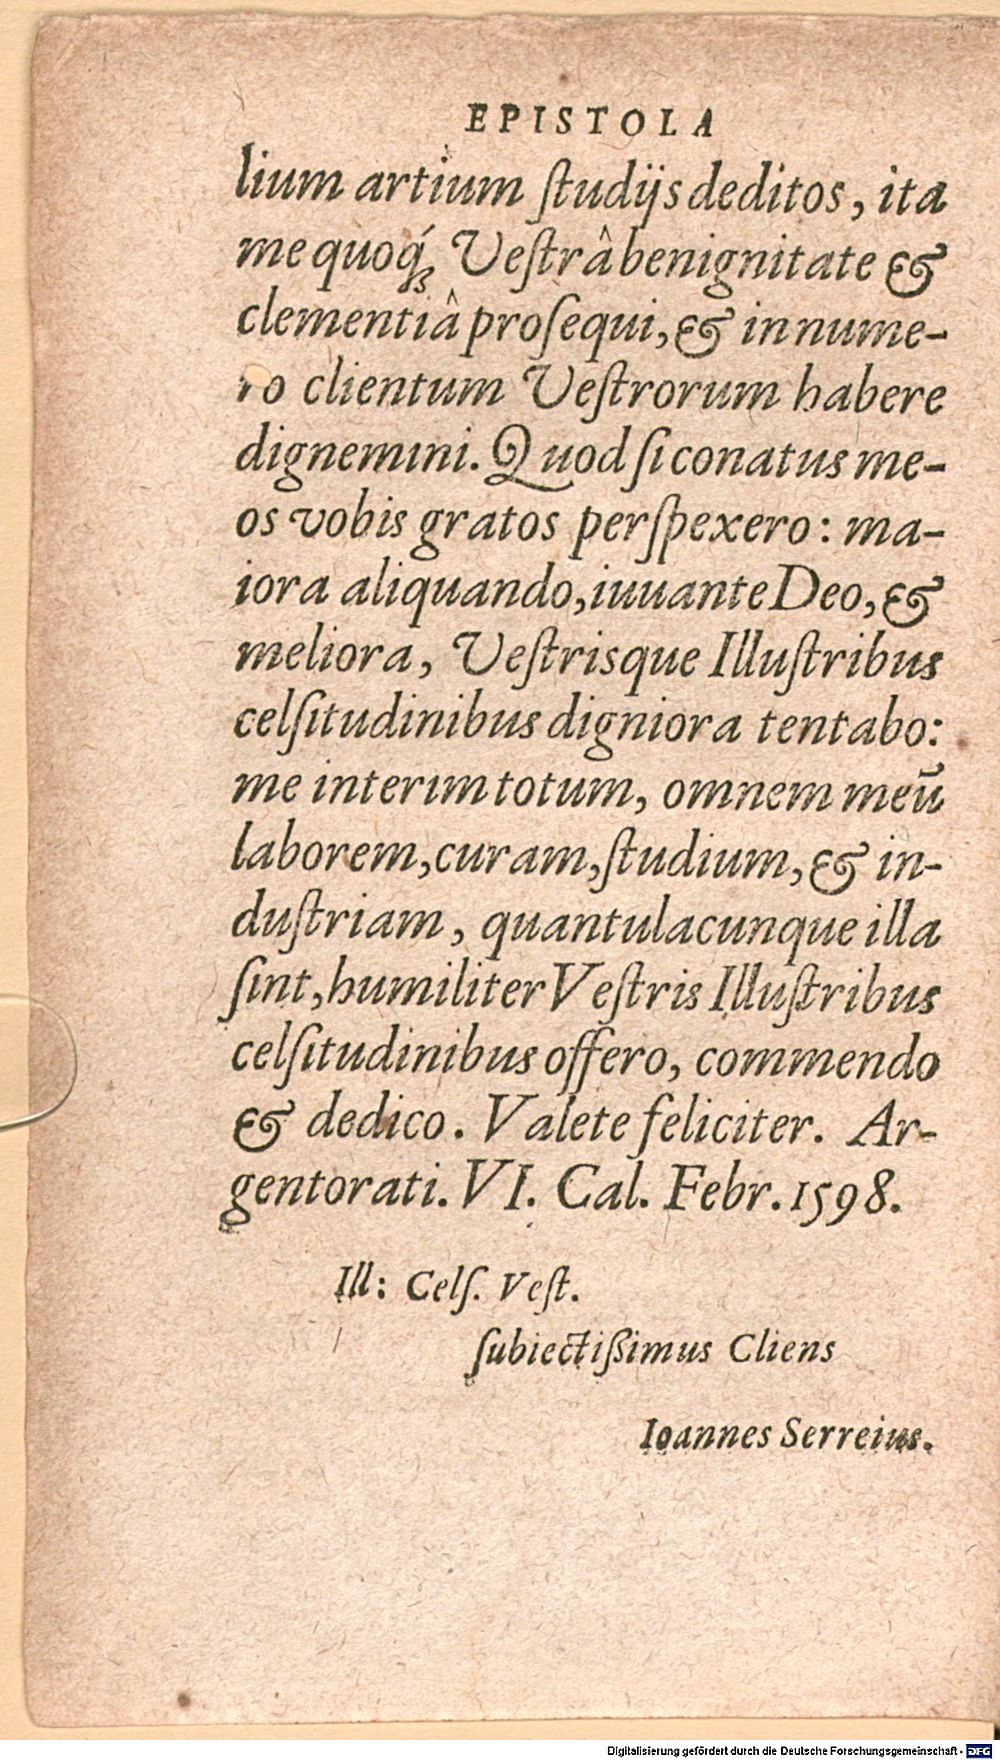 EPISTOLA
lium artium ſtudijs deditos, ita
me quoq́; Veſtrâ benignitate &
clementiâ proſequi, & in nume-
ro clientum Veſtrorum habere
dignemini. Quod ſi conatus me-
os vobis gratos perſpexero: ma-
iora aliquando, iuuante Deo, &
meliora, Veſtrisque Illuſtribus
celſitudinibus digniora tentabo:
me interim totum, omnem meū
laborem, curam, ſtudium, & in-
duſtriam, quantulacunque illa
ſint, humiliter Veſtris Illuſtribus
celſitudinibus offero, commendo
& dedico. Valete feliciter. Ar-
gentorati. VI. Cal. Febr. 1598.
Ill: Celſ. Veſt.
ſubiectißimus Cliens
Ioannes Serreius.
Digitalisierung gefördert durch die Deutsche Forschungsgemeinschaft - DFG